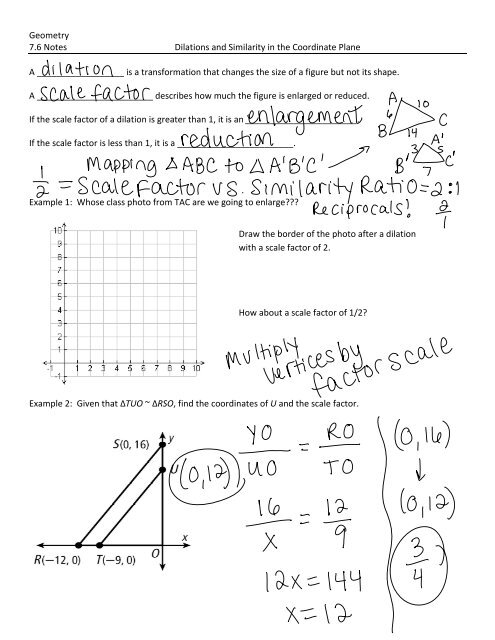 Geometry
7.6 Notes Dilations and Similarity in the Coordinate Plane
A dilation is a transformation that changes the size of a figure but not its shape.
A scale factor describes how much the figure is enlarged or reduced.
If the scale factor of a dilation is greater than 1, it is an enlargement
If the scale factor is less than 1, it is a reduction.
A 10 C
6
B 14
A'
3 5
B' C'
7
Mapping △ABC to △A'B'C'
1/2 = Scale Factor vs. Similarity Ratio = 2:1
Reciprocals! 2/1
Example 1: Whose class photo from TAC are we going to enlarge???
Draw the border of the photo after a dilation
with a scale factor of 2.
How about a scale factor of 1/2?
10
9
8
7
6
5
4
3
2
1
-1 1 2 3 4 5 6 7 8 9 10
-1
Multiply
vertices by
factor scale
Example 2: Given that ΔTUO ~ ΔRSO, find the coordinates of U and the scale factor.
S(0, 16) y
U (0,12),
x
R(−12, 0) T(−9, 0) O
YO/UO = RO/TO
16/x = 12/9
12x = 144
x = 12
(0,16)
↓
(0,12)
3/4